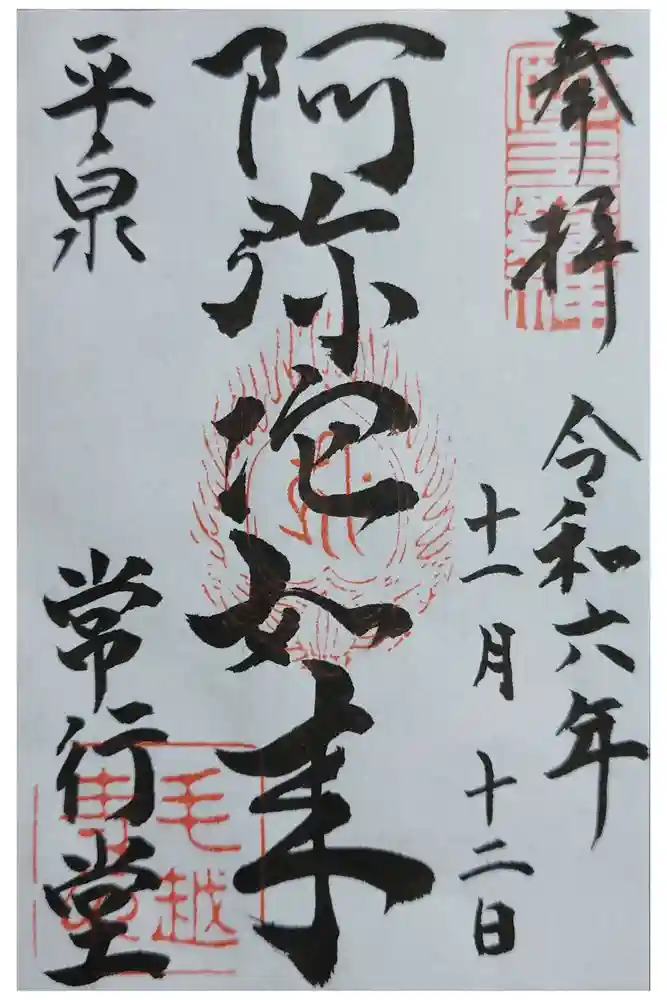 奉拝
令和六年
十一月 十二日
阿弥陀如来
平泉
常行堂
毛越